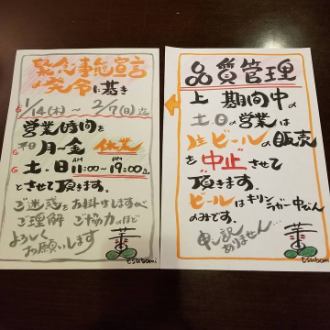 緊急事態宣言
発令に基き
1/14(木)~2/7(日)迄
営業時間を
平日 月~金 休業
土・日 AM11:00~PM19:00迄
とさせて頂きます。
ご迷惑をお掛けしますが
ご理解 ご協力のほど
よろしく
お願いします
tsubomi
品質管理
上 期間中の
土日の営業は
生ビールの販売
を中止させて
頂きます。
ビールはキリン
ラガー中びん
のみです。
申し訳
ありません…
tsubomi